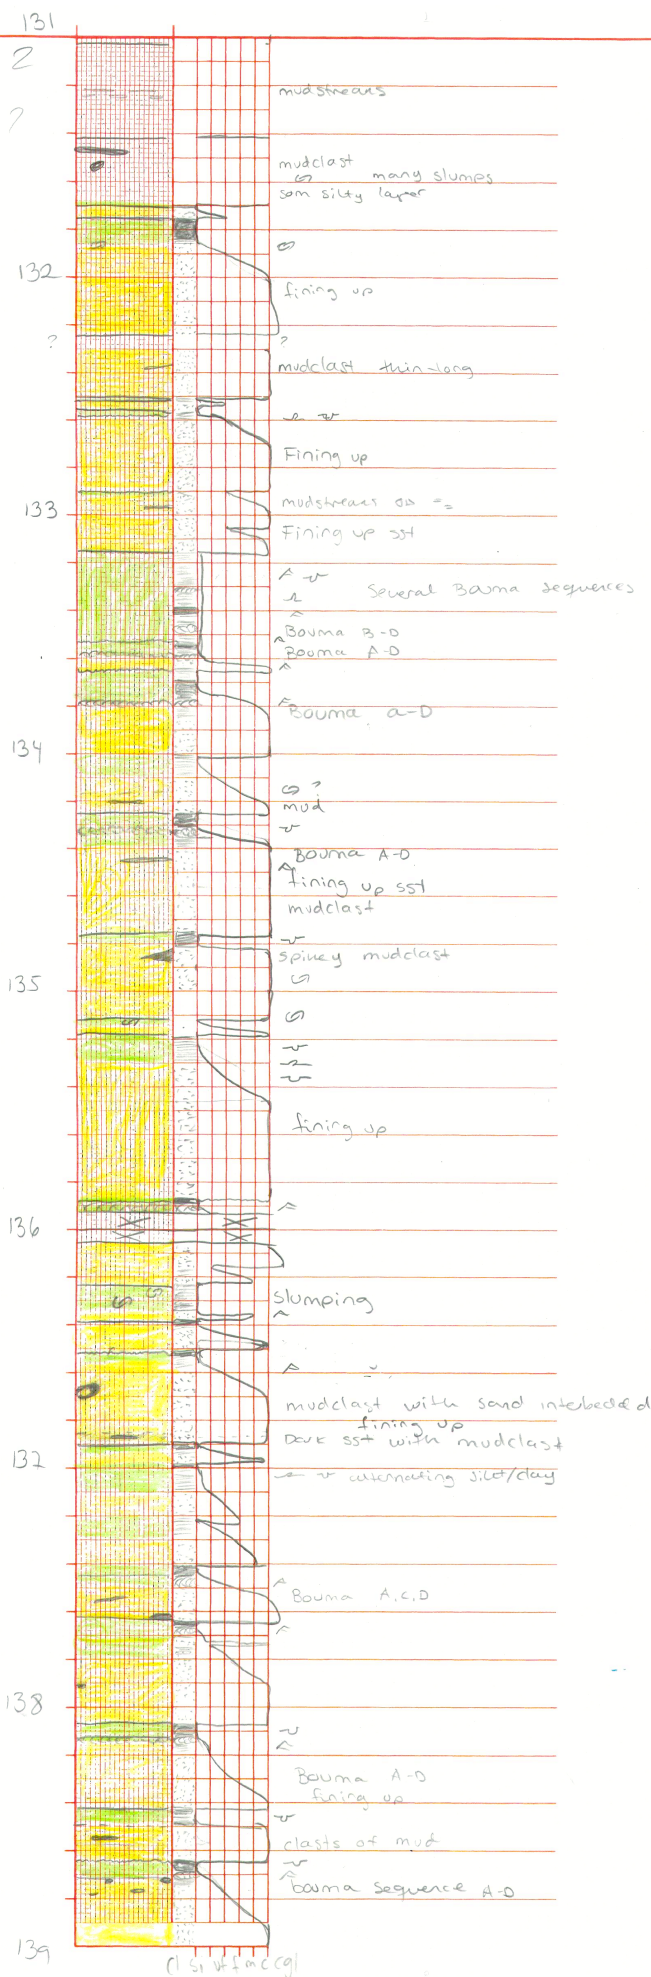 131
2
mudstreaks
?
mudclast
many slumps
som silty layer
132
fining up
?
?
mudclast thin-long
Fining up
mudstreaks
133
Fining up sst
Several Bouma sequences
Bouma B-D
Bouma A-D
Bouma a-D
134
?
mud
Bouma A-D
fining up sst
mudclast
spikey mudclast
135
fining up
136
slumping
mudclast with sand interbedded
fining up
Dark sst with mudclast
137
alternating silt/clay
Bouma A,C,D
138
Bouma A-D
fining up
clasts of mud
bouma sequence A-D
139
cl si vf f m c cgl